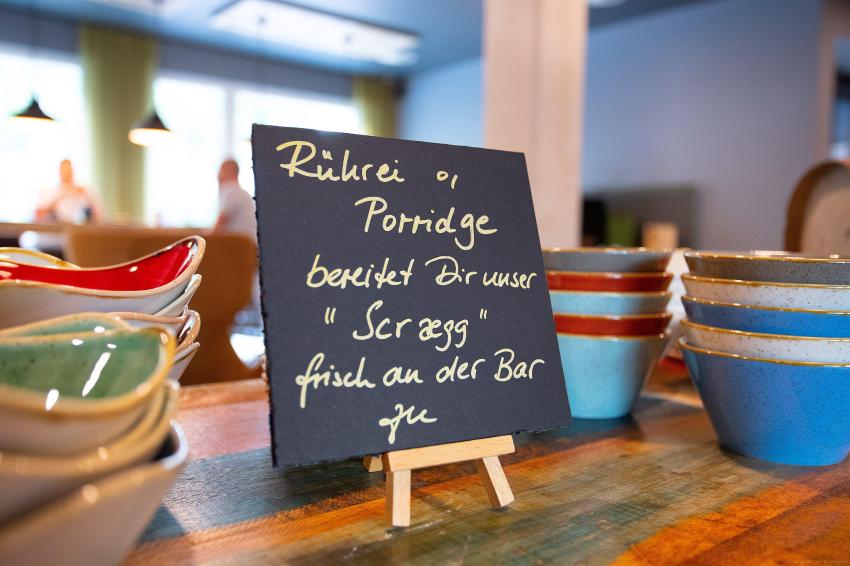 Rührei o,
Porridge
bereitet Dir unser
"Scrægg"
frisch an der Bar
zu